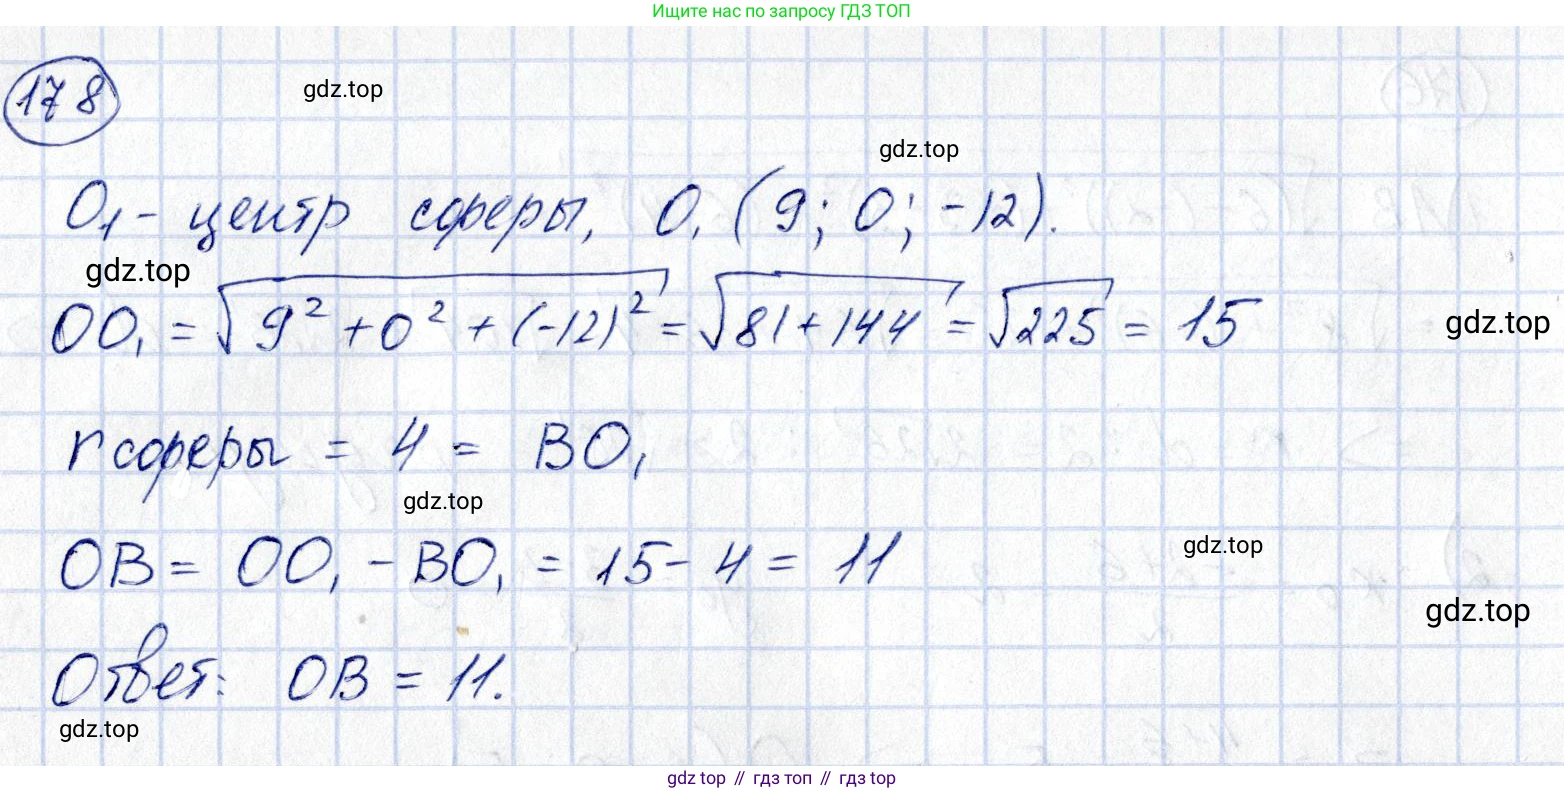 Ищите нас по запросу ГДЗ ТОП
178
gdz.top
gdz.top
O₁ - центр сферы, O₁ (9; 0; -12).
gdz.top
OO₁ = √(9² + 0² + (-12)²) = √(81 + 144) = √225 = 15
gdz.top
r сферы = 4 = BO₁
gdz.top
OB = OO₁ - BO₁ = 15 - 4 = 11
gdz.top
gdz.top
Ответ: OB = 11.
gdz.top
gdz top // гдз топ // гдз top